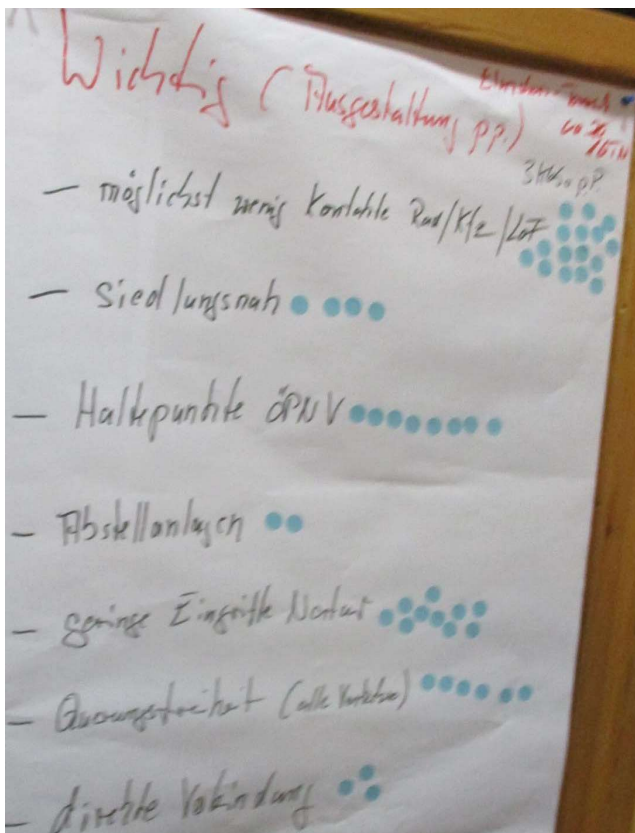 Wichtig (Ausgestaltung pp.)
– möglichst wenig Kontakte Rad/Kfz/LoF
– Siedlungsnah
– Haltepunkte ÖPNV
– Abstellanlagen
– geringe Eingriffe Natur
– Querungsfreiheit (alle
– direkte Verbindung